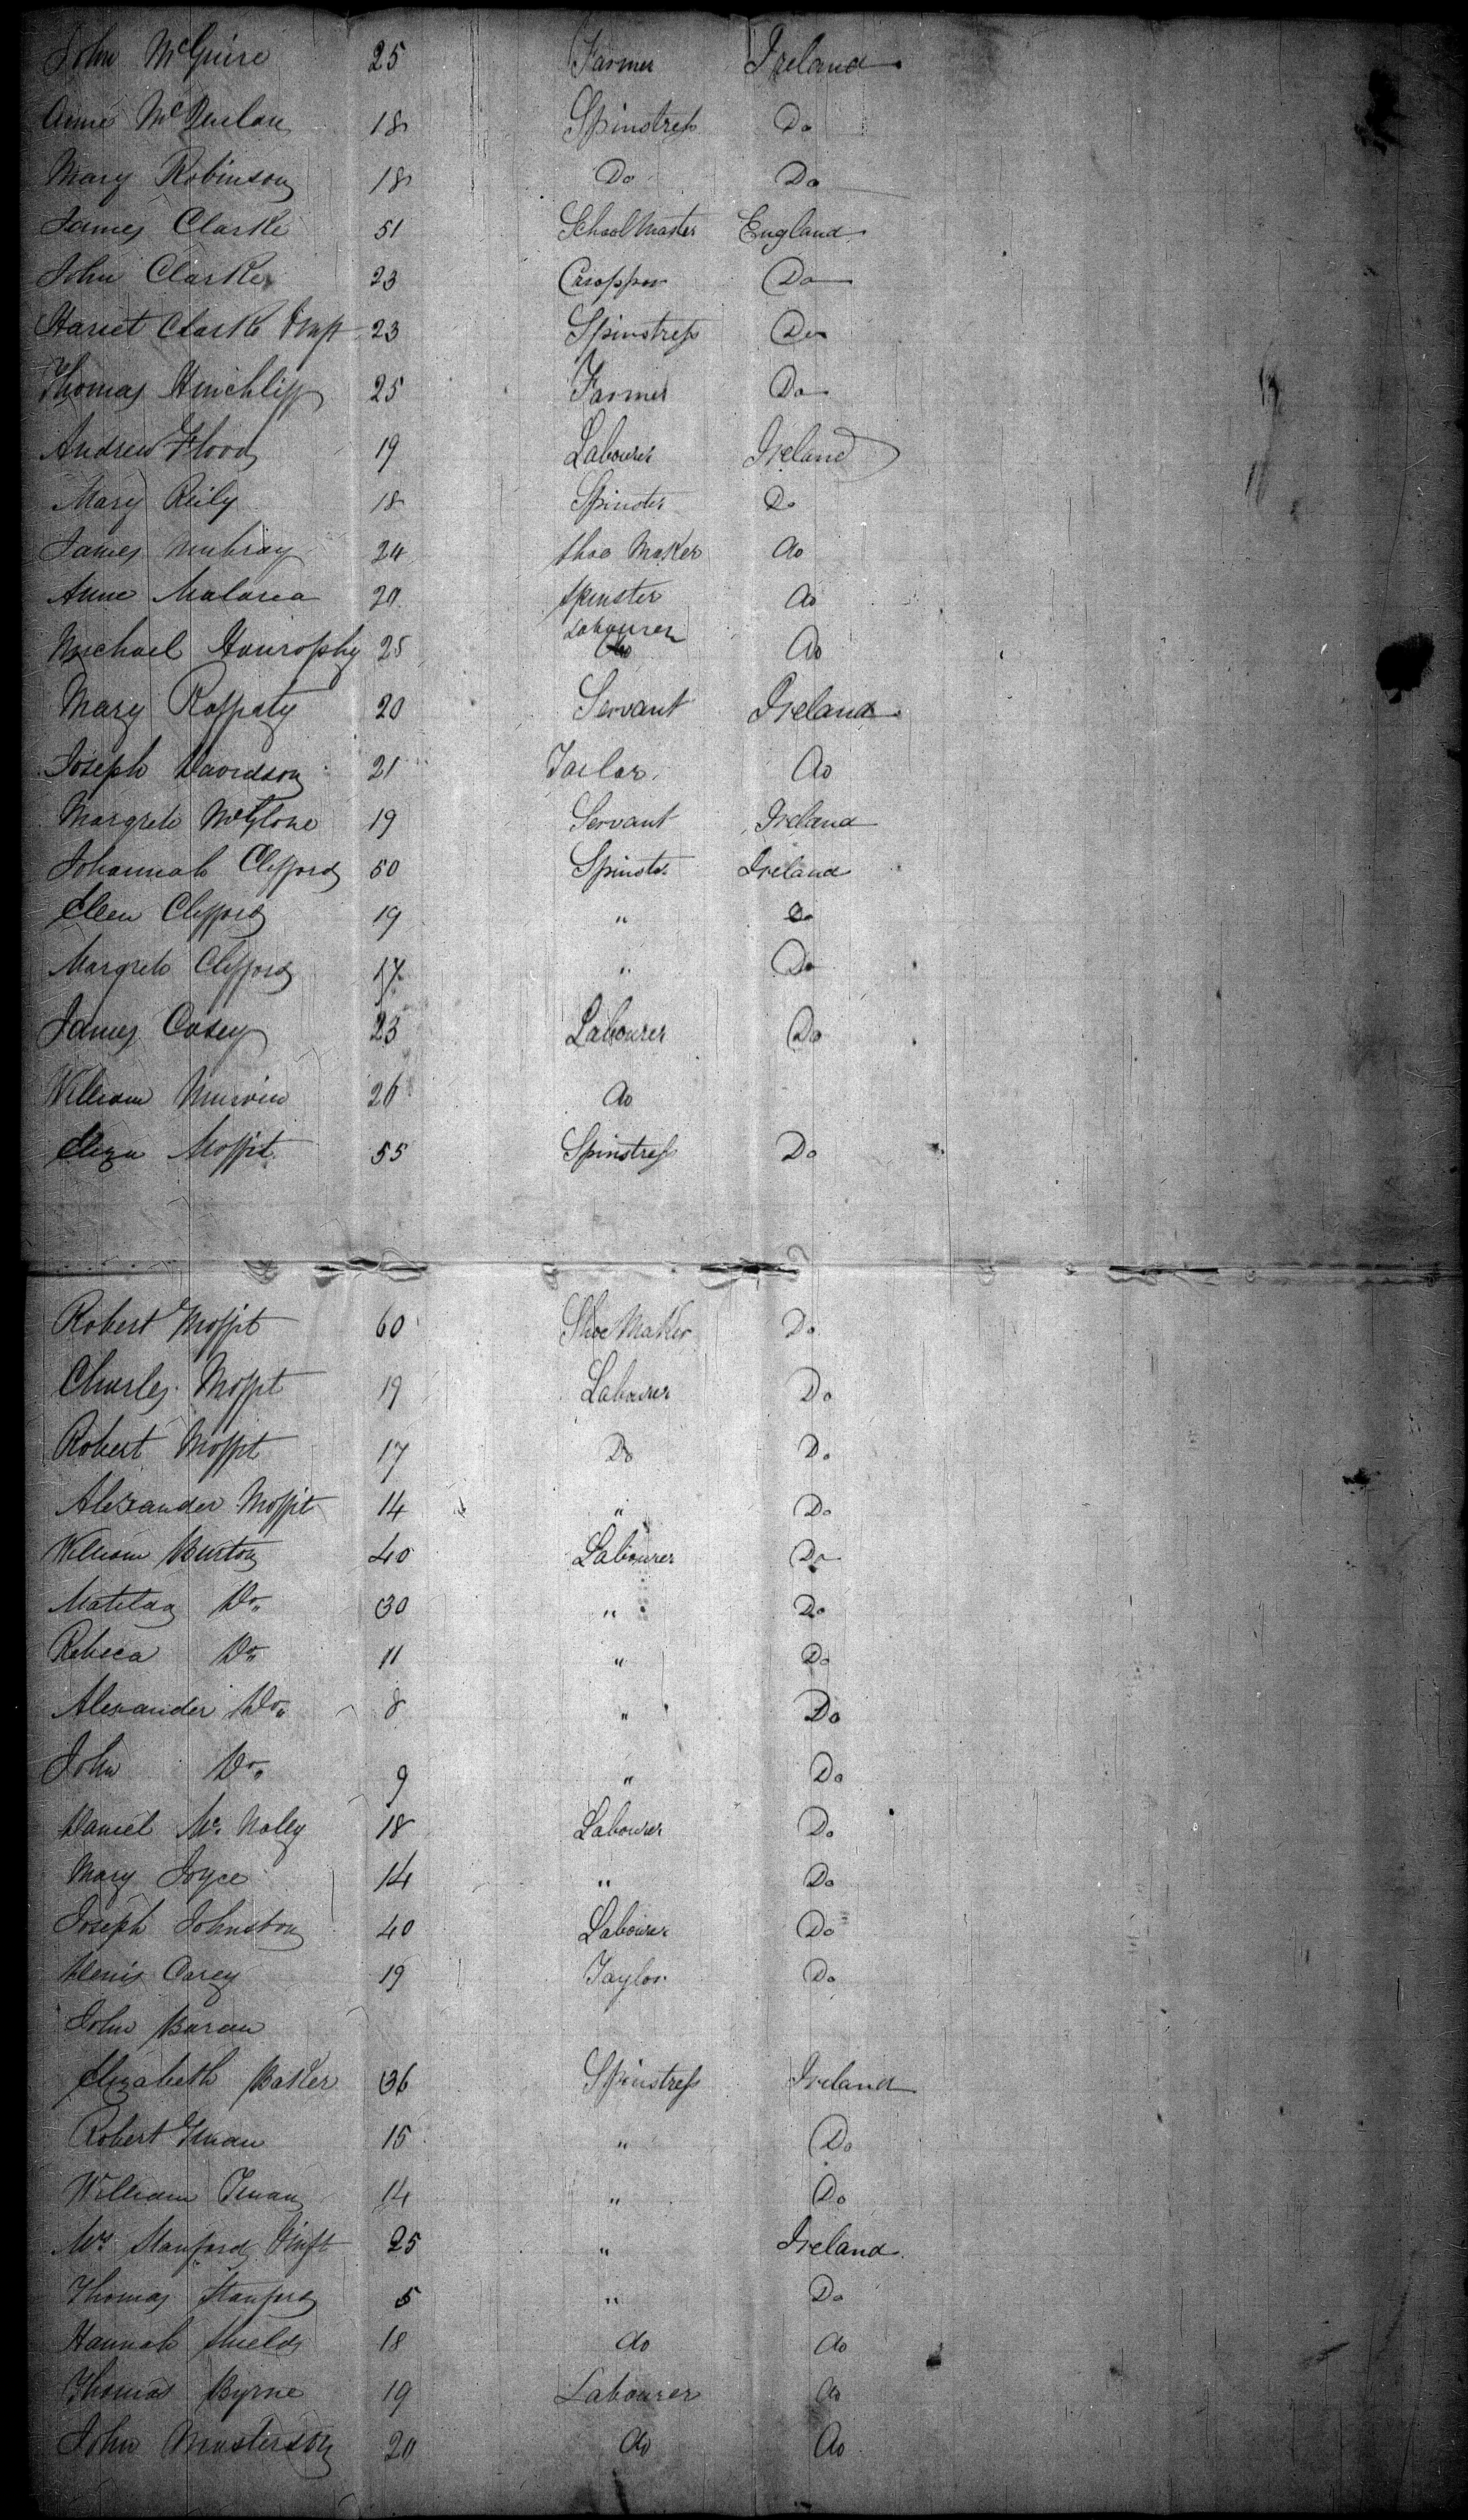 John McGuire 25 Farmer Ireland
Anne McQuilan 18 Spinstress Do
Mary Robinson 18 Do Do
James Clarke 51 School Master England
John Clarke 23 Cropper Do
Hariet Clarke & Inft 23 Spinstress Do
Thomas Hinchliff 25 Farmer Do
Andrew Flood 19 Labourer Ireland
Mary Reily 18 Spinster Do
James 24 Shoe Maker do
Anne 20 Spinster do
Michael 25 Labourer do
Mary Rafferty 20 Servant Ireland
Joseph Davidson 21 Tailor do
Margreto McGlone 19 Servant Ireland
Johannah Clifford 50 Spinster Ireland
Ellen Clifford 19 " Do
Margreto Clifford 17 " Do
James Casey 23 Labourer Do
William 26 do
Eliza Moffit 55 Spinstress Do
Robert Moffit 60 Shoe Maker Do
Charles Moffit 19 Labourer Do
Robert Moffit 17 Do Do
Alexander Moffit 14 " Do
William Burton 40 Labourer Do
Matilda Do 30 " Do
Rebeca Do 11 " Do
Alexander Do 8 " Do
John Do 9 " Do
Daniel Mc Naley 18 Labourer Do
Mary Joyce 14 " Do
Joseph Johnston 40 Labourer Do
Denis Carey 19 Taylor Do
John Baran
Elizabeth Baker 36 Spinstress Ireland
Robert 15 " Do
William 14 " Do
Mrs Stanford & Inft 25 " Ireland
Thomas Stanford 5 " Do
Hannah Shields 18 do do
Thomas Byrne 19 Labourer do
John Masterson 20 do do